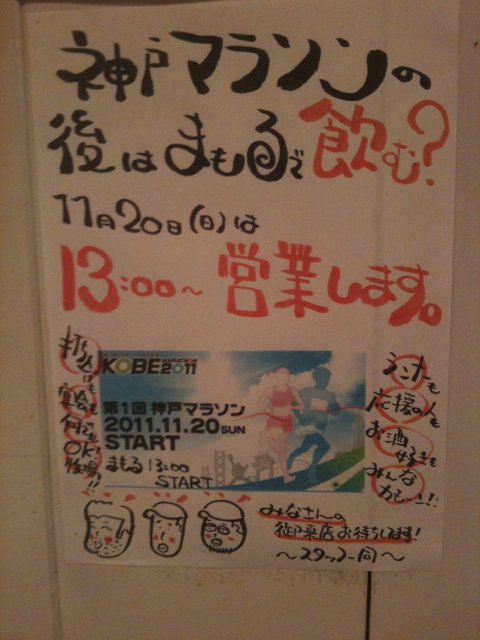 神戸マラソンの
後は まもるで 飲む?
11月20日(日)は
13:00~ 営業します。
打ち
込みも
宴会も
何でも
OK!
KOBE MARATHON 2011
第1回 神戸マラソン
2011.11.20 SUN
START
まもる 13:00
START
ランナーも
応援の人も
お酒
好きも
みんな
カモーン!!
みなさんの
御来店お待ちしてます!
~スタッフ一同~